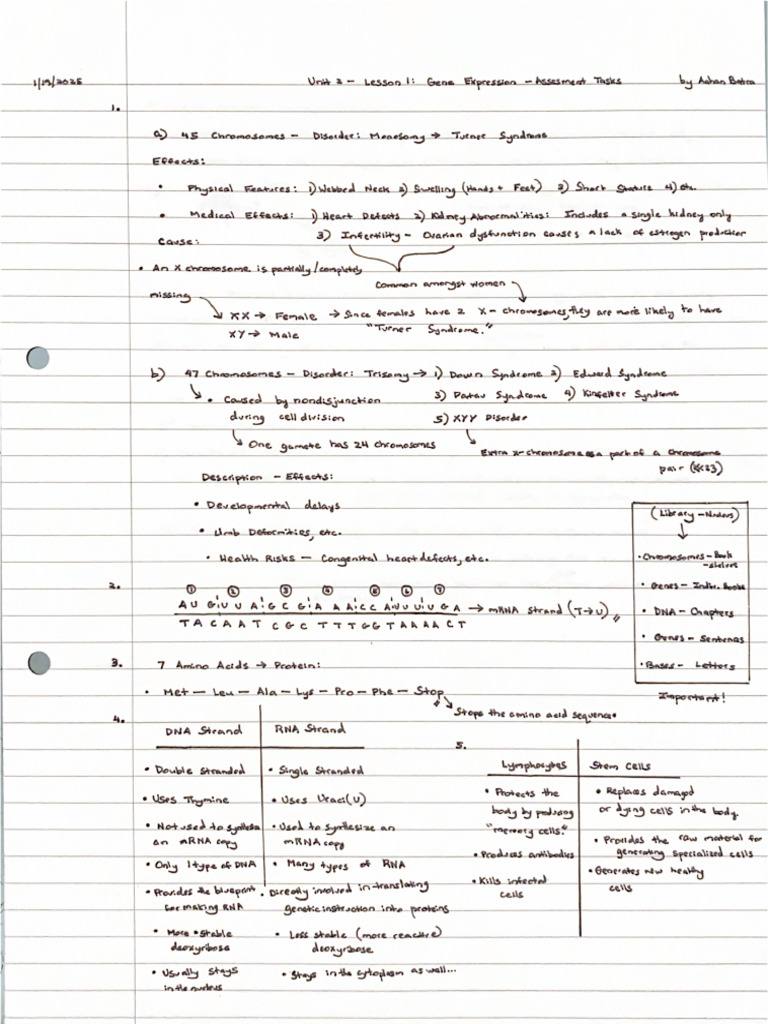 1/19/2025 Unit 2 - Lesson 1: Gene Expression - Assesment Tasks by Aahan Batra
1.
a) 45 Chromosomes - Disorder: Monosomy → Turner Syndrome
Effects:
• Physical Features: 1) Webbed Neck 2) Swelling (Hands + Feet) 3) Short Stature 4) etc.
• Medical Effects: 1) Heart Defects 2) Kidney Abnormalities: Includes a single kidney only
3) Infertility - Ovarian dysfunction causes a lack of estrogen production
Cause:
• An X chromosome is partially/completely
missing
Common amongst women
XX → Female → Since females have 2 X-chromosomes, they are more likely to have
"Turner Syndrome."
XY → Male
b) 47 Chromosomes - Disorder: Trisomy → 1) Down Syndrome 2) Edward Syndrome
3) Patau Syndrome 4) Kinfelter Syndrome
5) XYY Disorder
• Caused by nondisjunction
during cell division
One gamete has 24 chromosomes
Extra x-chromosome as a part of a chromosome
pair (
Description - Effects:
• Developmental delays
• Limb Deformities, etc.
• Health Risks - Congenital heart defects, etc.
(Library - Nucleus)
• Chromosomes - Book
-shelves
• Genes - Indiv. Books
• DNA - Chapters
• Genes - Sentences
• Bases - Letters
Important!
2.
① ② ③ ④ ⑤ ⑥ ⑦
A U G U U A G C G A A A C C A U U U U G A → mRNA Strand (T→U)
T A C A A T C G C T T T G G T A A A A C T
3. 7 Amino Acids → Protein:
• Met - Leu - Ala - Lys - Pro - Phe - Stop
Stops the amino acid sequence.
4.
DNA Strand RNA Strand
• Double Stranded • Single Stranded
• Uses Thymine • Uses Uracil (U)
• Not used to synthesize • Used to synthesize an
an mRNA copy mRNA copy
• Only 1 type of DNA • Many types of RNA
• Provides the blueprint • Directly involved in translating
for making RNA genetic instruction into proteins
• More stable • Less stable (more reactive)
deoxyribose deoxyribose
• Usually stays • Stays in the cytoplasm as well...
in the nucleus
5.
Lymphocytes Stem Cells
• Protects the • Replaces damaged
body by producing or dying cells in the body.
"memory cells." • Provides the raw material for
generating specialized cells
• Produces antibodies • Generates new healthy
cells
• Kills infected
cells